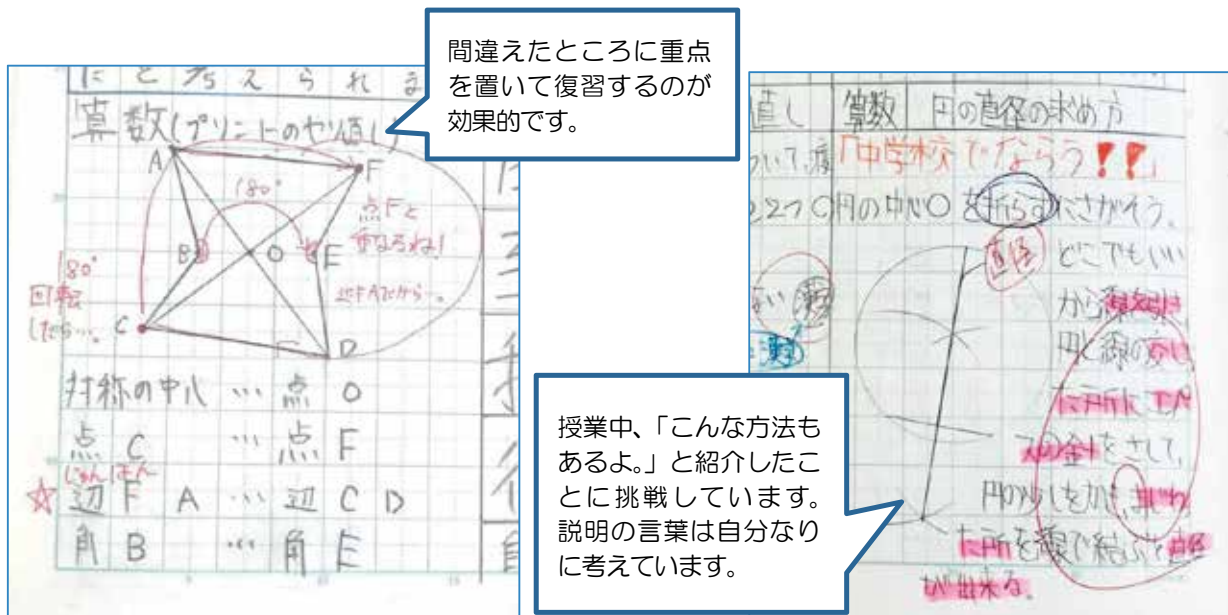 間違えたところに重点
を置いて復習するのが
効果的です。
にと考えられま
算数(プリントのやり直し)
A
F
180°
点Fと
重なるね!
B
O
E
辺FAだから…。
180°
回転
したら…。
C
D
対称の中心…点O
点C…点F
じゅんばん
☆辺FA…辺CD
角B…角E
直し
算数 円の直径の求め方
「中学校でならう!!」
円の中心Oを折らずにさがそう。
直径
どこでもいい
から線を引き、
円と線の
た所にコンパ
スの金十をさして、
円の少しをかき、まじわっ
た所を線で結ぶと直径
が出来る。
授業中、「こんな方法も
あるよ。」と紹介したこ
とに挑戦しています。
説明の言葉は自分なり
に考えています。